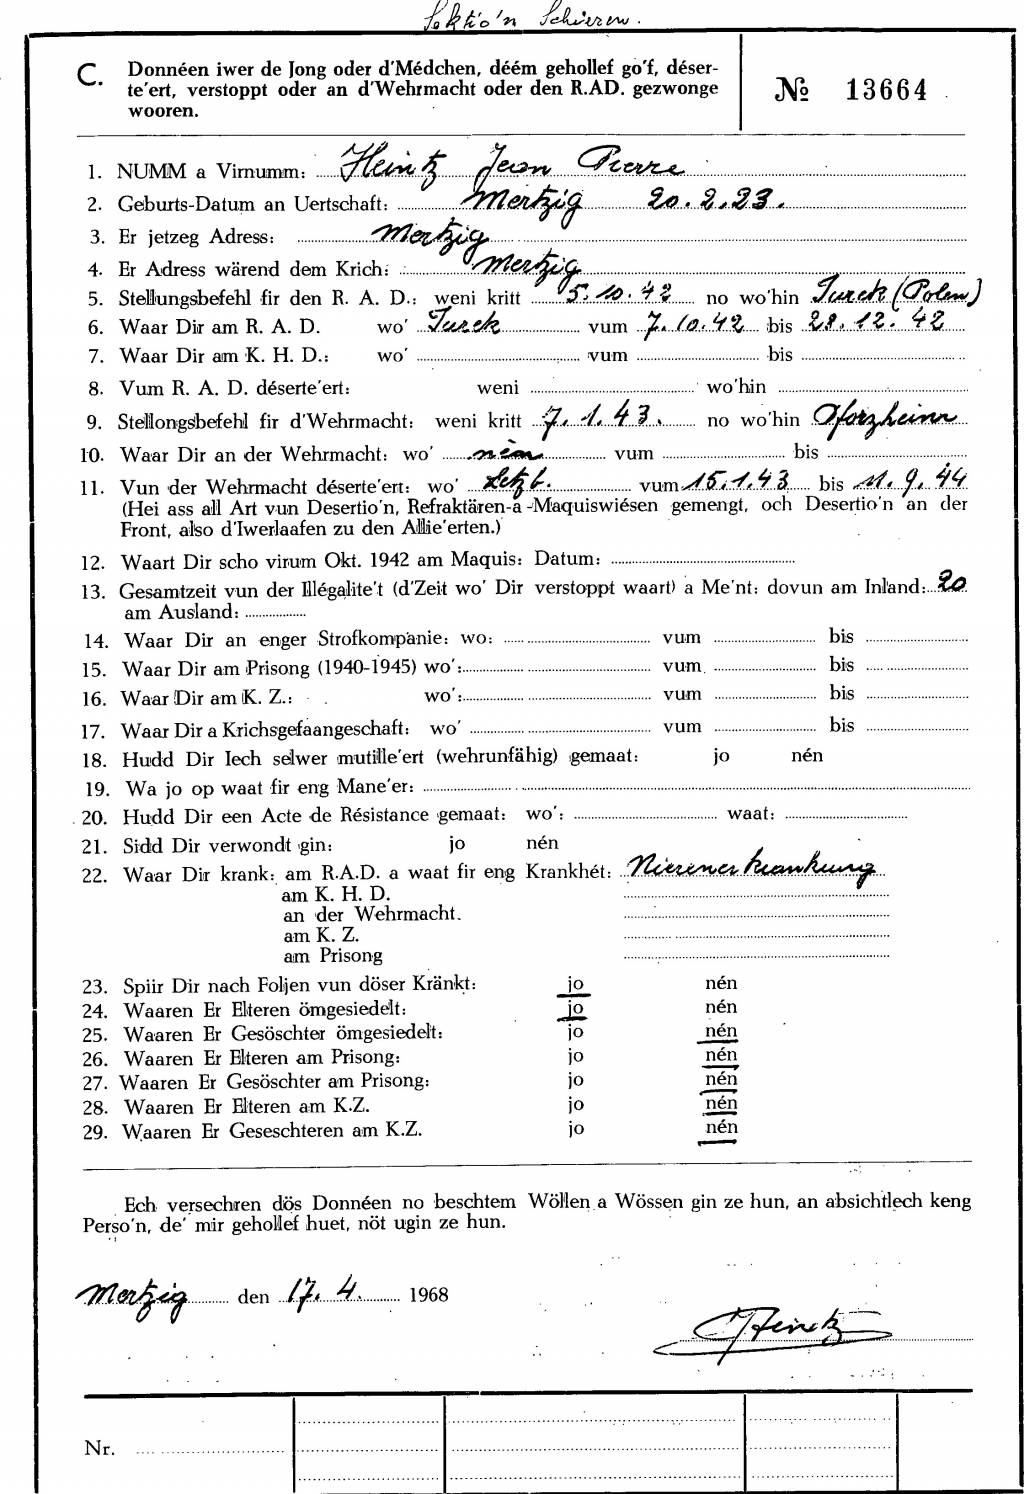 Sektio'n Schieren.
C. Donnéen iwer de Jong oder d'Médchen, déém gehollef go'f, déser-
te'ert, verstoppt oder an d'Wehrmacht oder den R.AD. gezwonge
wooren.
№ 13664
1. NUMM a Virnumm: Heintz Jean Pierre
2. Geburts-Datum an Uertschaft: Mertzig 20.2.23.
3. Er jetzeg Adress: Mertzig
4. Er Adress wärend dem Krich: Mertzig
5. Stellungsbefehl fir den R. A. D.: weni kritt 5.10.42 no wo'hin Turek (Polen)
6. Waar Dir am R. A. D. wo' Turek vum 7.10.42 bis 28.12.42
7. Waar Dir am K. H. D.: wo' vum bis
8. Vum R. A. D. déserte'ert: weni wo'hin
9. Stellongsbefehl fir d'Wehrmacht: weni kritt 7.1.43. no wo'hin Pforzheim
10. Waar Dir an der Wehrmacht: wo' nèn vum bis
11. Vun der Wehrmacht déserte'ert: wo' Letzb. vum 15.1.43 bis 11.9.44
(Hei ass all Art vun Desertio'n, Refraktären-a -Maquiswiésen gemengt, och Desertio'n an der
Front, also d'Iwerlaafen zu den Allie'erten.)
12. Waart Dir scho virum Okt. 1942 am Maquis: Datum:
13. Gesamtzeit vun der Illégalite't (d'Zeit wo' Dir verstoppt waart) a Me'nt: dovun am Inland: 20
am Ausland:
14. Waar Dir an enger Strofkompanie: wo: vum bis
15. Waar Dir am Prisong (1940-1945) wo': vum bis
16. Waar Dir am K. Z.: wo': vum bis
17. Waar Dir a Krichsgefaangeschaft: wo' vum bis
18. Hudd Dir Iech selwer mutille'ert (wehrunfähig) gemaat: jo nén
19. Wa jo op waat fir eng Mane'er:
20. Hudd Dir een Acte de Résistance gemaat: wo': waat:
21. Sidd Dir verwondt gin: jo nén
22. Waar Dir krank: am R.A.D. a waat fir eng Krankhét: Nierenerkrankung
am K. H. D.
an der Wehrmacht.
am K. Z.
am Prisong
23. Spiir Dir nach Foljen vun döser Kränkt: jo nén
24. Waaren Er Elteren ömgesiedelt: jo nén
25. Waaren Er Gesöschter ömgesiedelt: jo nén
26. Waaren Er Elteren am Prisong: jo nén
27. Waaren Er Gesöschter am Prisong: jo nén
28. Waaren Er Elteren am K.Z. jo nén
29. Waaren Er Geseschteren am K.Z. jo nén
Ech versechren dös Donnéen no beschtem Wöllen a Wössen gin ze hun, an absichtlech keng
Perso'n, de' mir gehollef huet, nöt ugin ze hun.
Mertzig den 17. 4. 1968
Heintz
Nr.